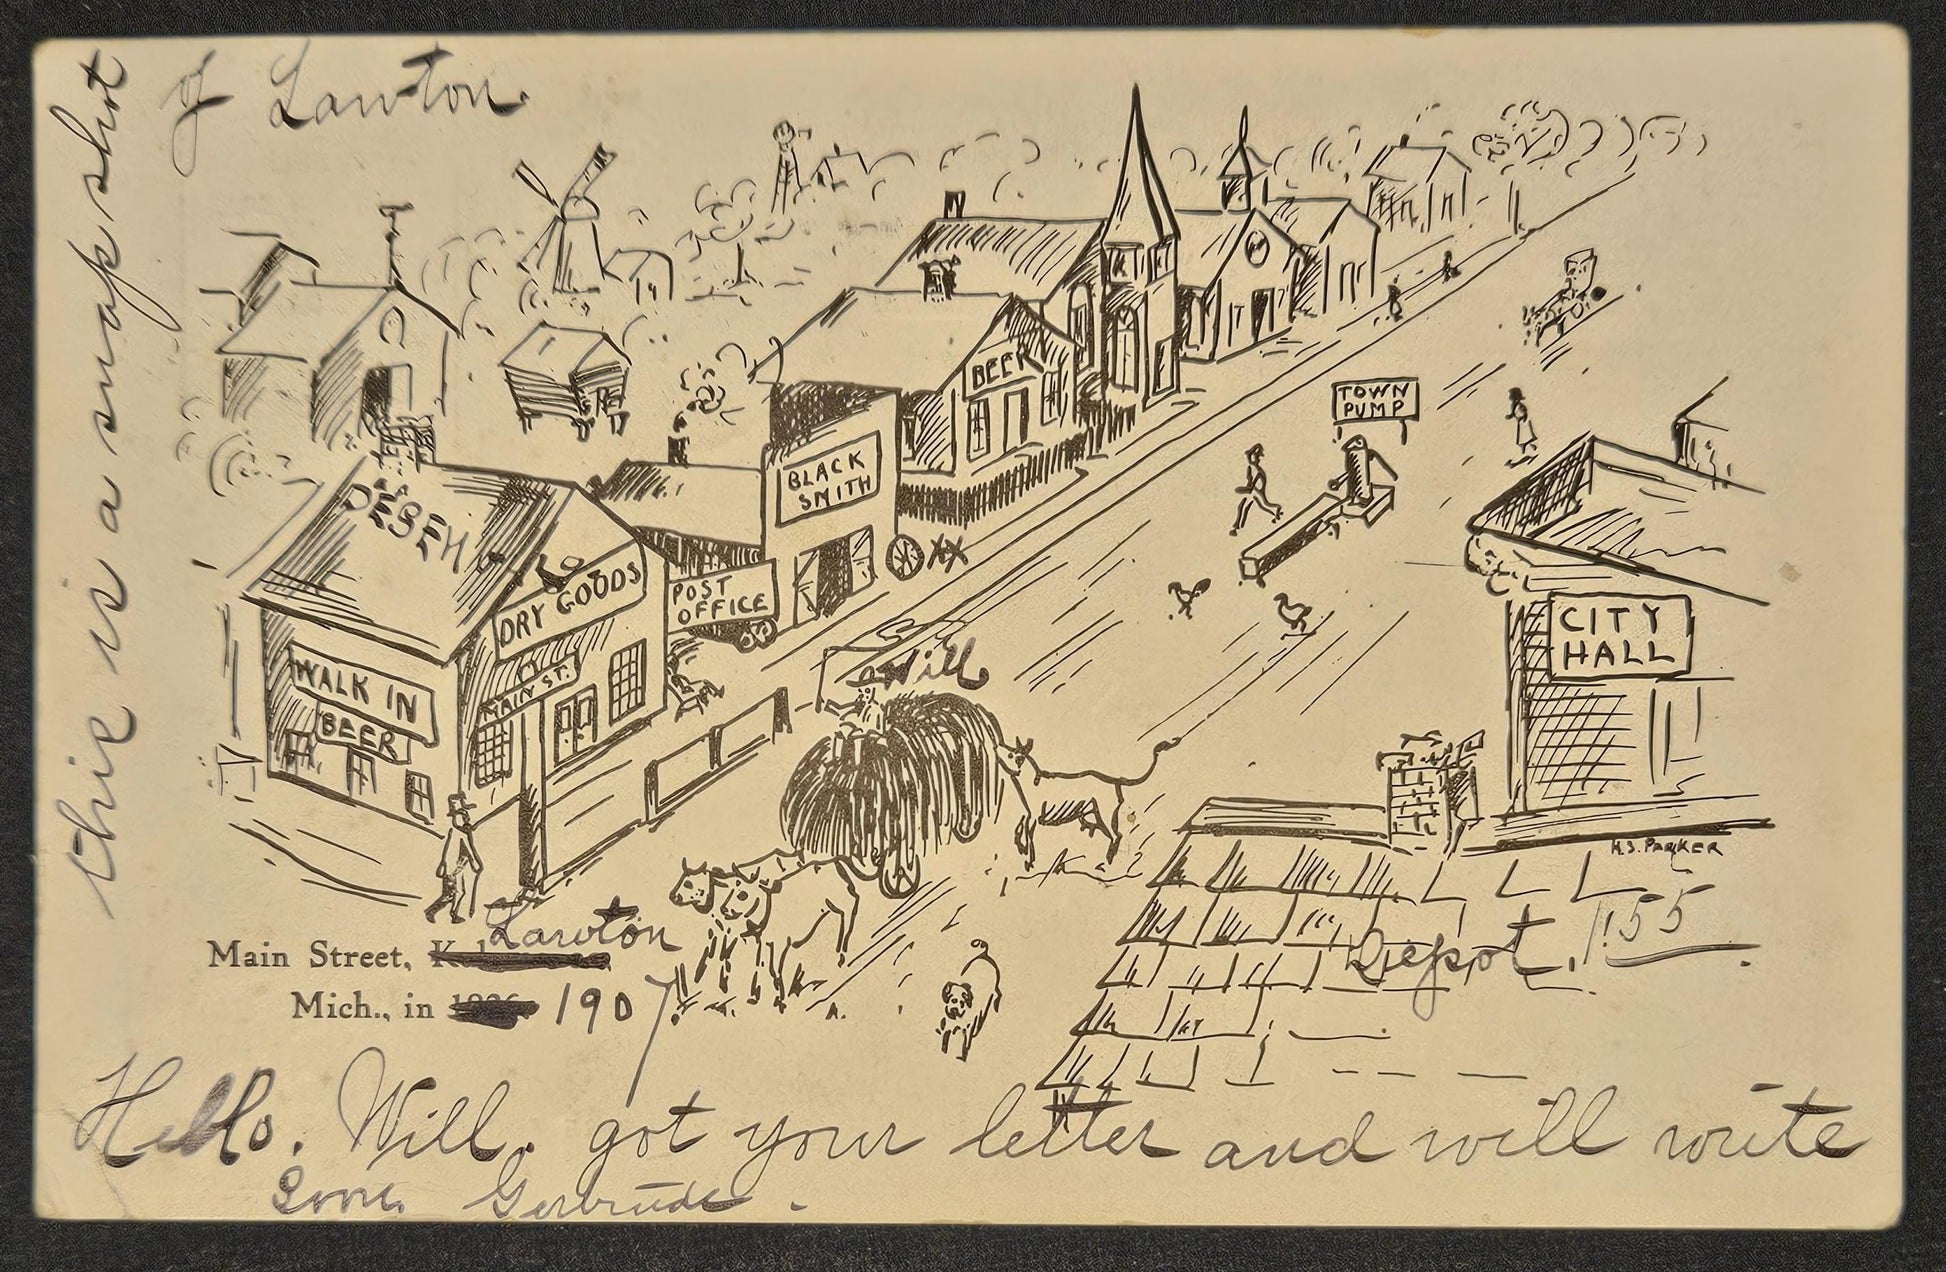 this is a snap shot
of Lawton.
BEER
TOWN
PUMP
BLACK
SMITH
DRY GOODS
POST
OFFICE
CITY
HALL
WALK IN
BEER
MAIN ST.
Will
H.S. PARKER
Depot. 1:55
Lawton
Main Street,
Mich., in 1907
Hello. Will. got your letter and will write
soon. Gertrude.